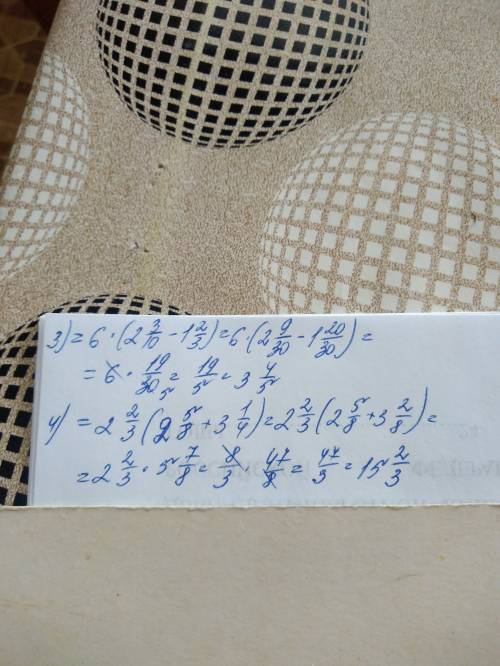 3) = 6 · (2 3/10 - 1 2/3) = 6 · (2 9/30 - 1 20/30) =
= 6 · 19/30 = 19/5 = 3 4/5
4) = 2 2/3 (2 5/8 + 3 1/4) = 2 2/3 (2 5/8 + 3 2/8) =
= 2 2/3 · 5 7/8 = 8/3 · 47/8 = 47/3 = 15 2/3